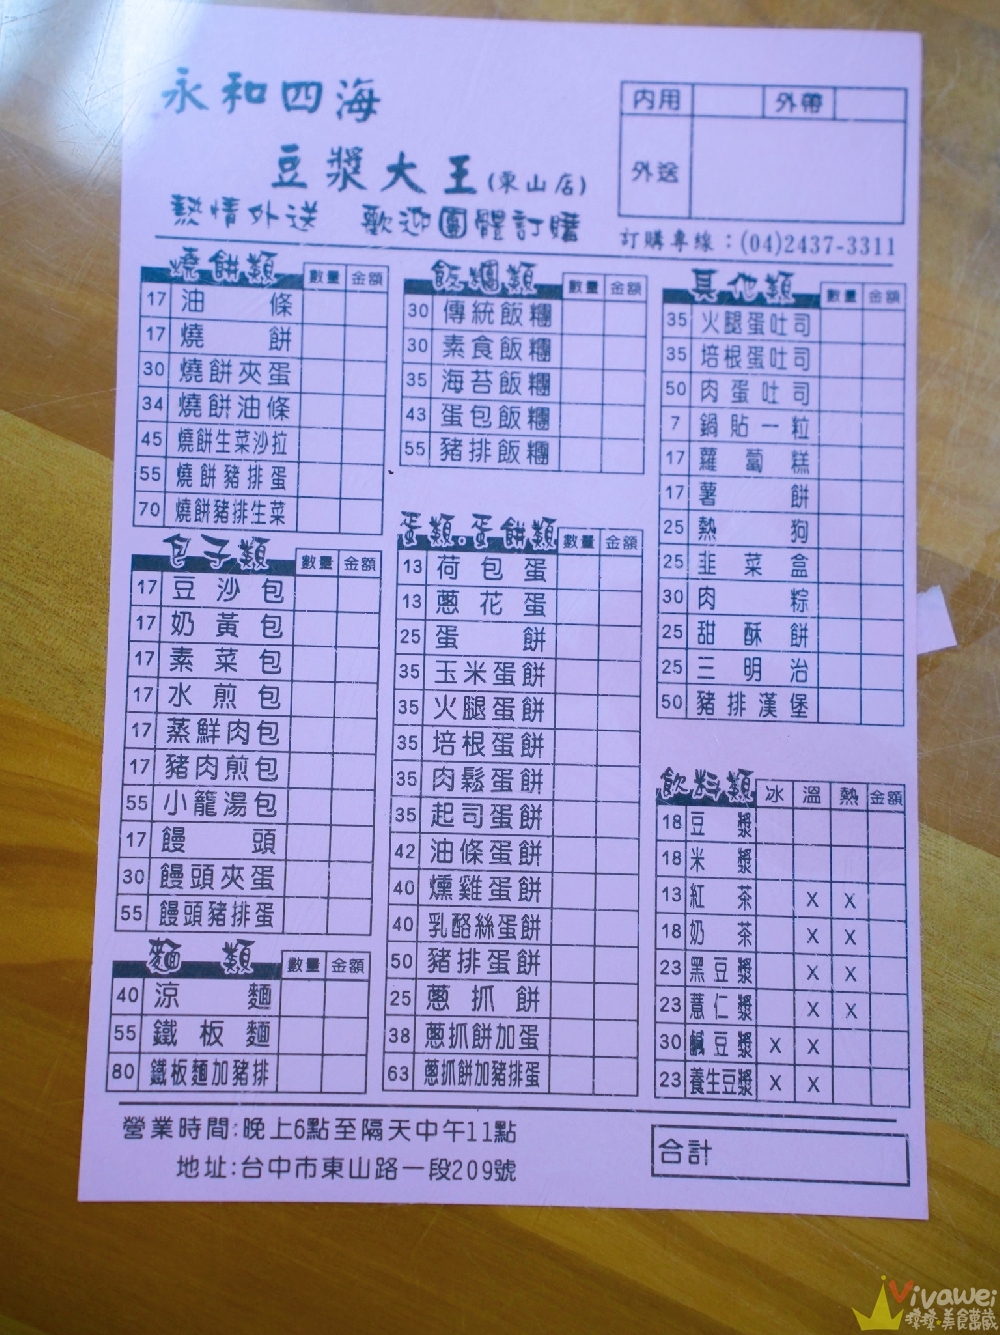 永和四海
豆漿大王(東山店)
熱情外送 歡迎團體訂購
內用 外帶
外送
訂購專線：(04)2437-3311
燒餅類 數量 金額
17 油條
17 燒餅
30 燒餅夾蛋
34 燒餅油條
45 燒餅生菜沙拉
55 燒餅豬排蛋
70 燒餅豬排生菜
包子類 數量 金額
17 豆沙包
17 奶黃包
17 素菜包
17 水煎包
17 蒸鮮肉包
17 豬肉煎包
55 小籠湯包
17 饅頭
30 饅頭夾蛋
55 饅頭豬排蛋
麵類 數量 金額
40 涼麵
55 鐵板麵
80 鐵板麵加豬排
飯糰類 數量 金額
30 傳統飯糰
30 素食飯糰
35 海苔飯糰
43 蛋包飯糰
55 豬排飯糰
蛋類.蛋餅類 數量 金額
13 荷包蛋
13 蔥花蛋
25 蛋餅
35 玉米蛋餅
35 火腿蛋餅
35 培根蛋餅
35 肉鬆蛋餅
35 起司蛋餅
42 油條蛋餅
40 燻雞蛋餅
40 乳酪絲蛋餅
50 豬排蛋餅
25 蔥抓餅
38 蔥抓餅加蛋
63 蔥抓餅加豬排蛋
其他類 數量 金額
35 火腿蛋吐司
35 培根蛋吐司
50 肉蛋吐司
7 鍋貼一粒
17 蘿蔔糕
17 薯餅
25 熱狗
25 韭菜盒
30 肉粽
25 甜酥餅
25 三明治
50 豬排漢堡
飲料類 冰 溫 熱 金額
18 豆漿
18 米漿
13 紅茶 X X
18 奶茶 X X
23 黑豆漿 X X
23 薏仁漿 X X
30 鹹豆漿 X X
23 養生豆漿 X X
營業時間:晚上6點至隔天中午11點
地址:台中市東山路一段209號
合計
Vivawei
美食寶藏